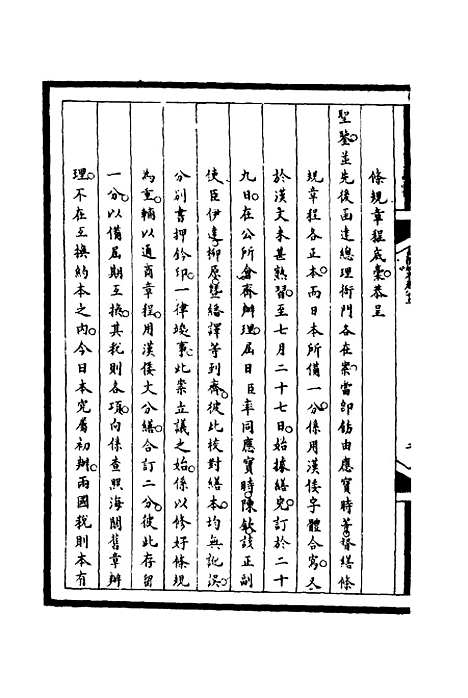 條規章程底稾恭呈
聖鑒並先後函達總理衙門各在案當即飭由應寶時等督繕條
規章程各正本而日本所備一分係用漢倭字體合寫又
於漢文未甚熟習至七月二十七日始據繕完訂於二十
九日在公所會齊辦理屆日臣率同應寶時陳欽該正副
使臣伊達柳原曁繙譯等到齊彼此校對繕本均無訛誤
分別書押鈐印一律竣事此案立議之始係以修好條規
為重輔以通商章程用漢倭文分繕合訂二分彼此存留
一分以備屆期互換其稅則各項向係查照海關舊章辦
理不在互換約本之內今日本究屬初辦兩國稅則本有